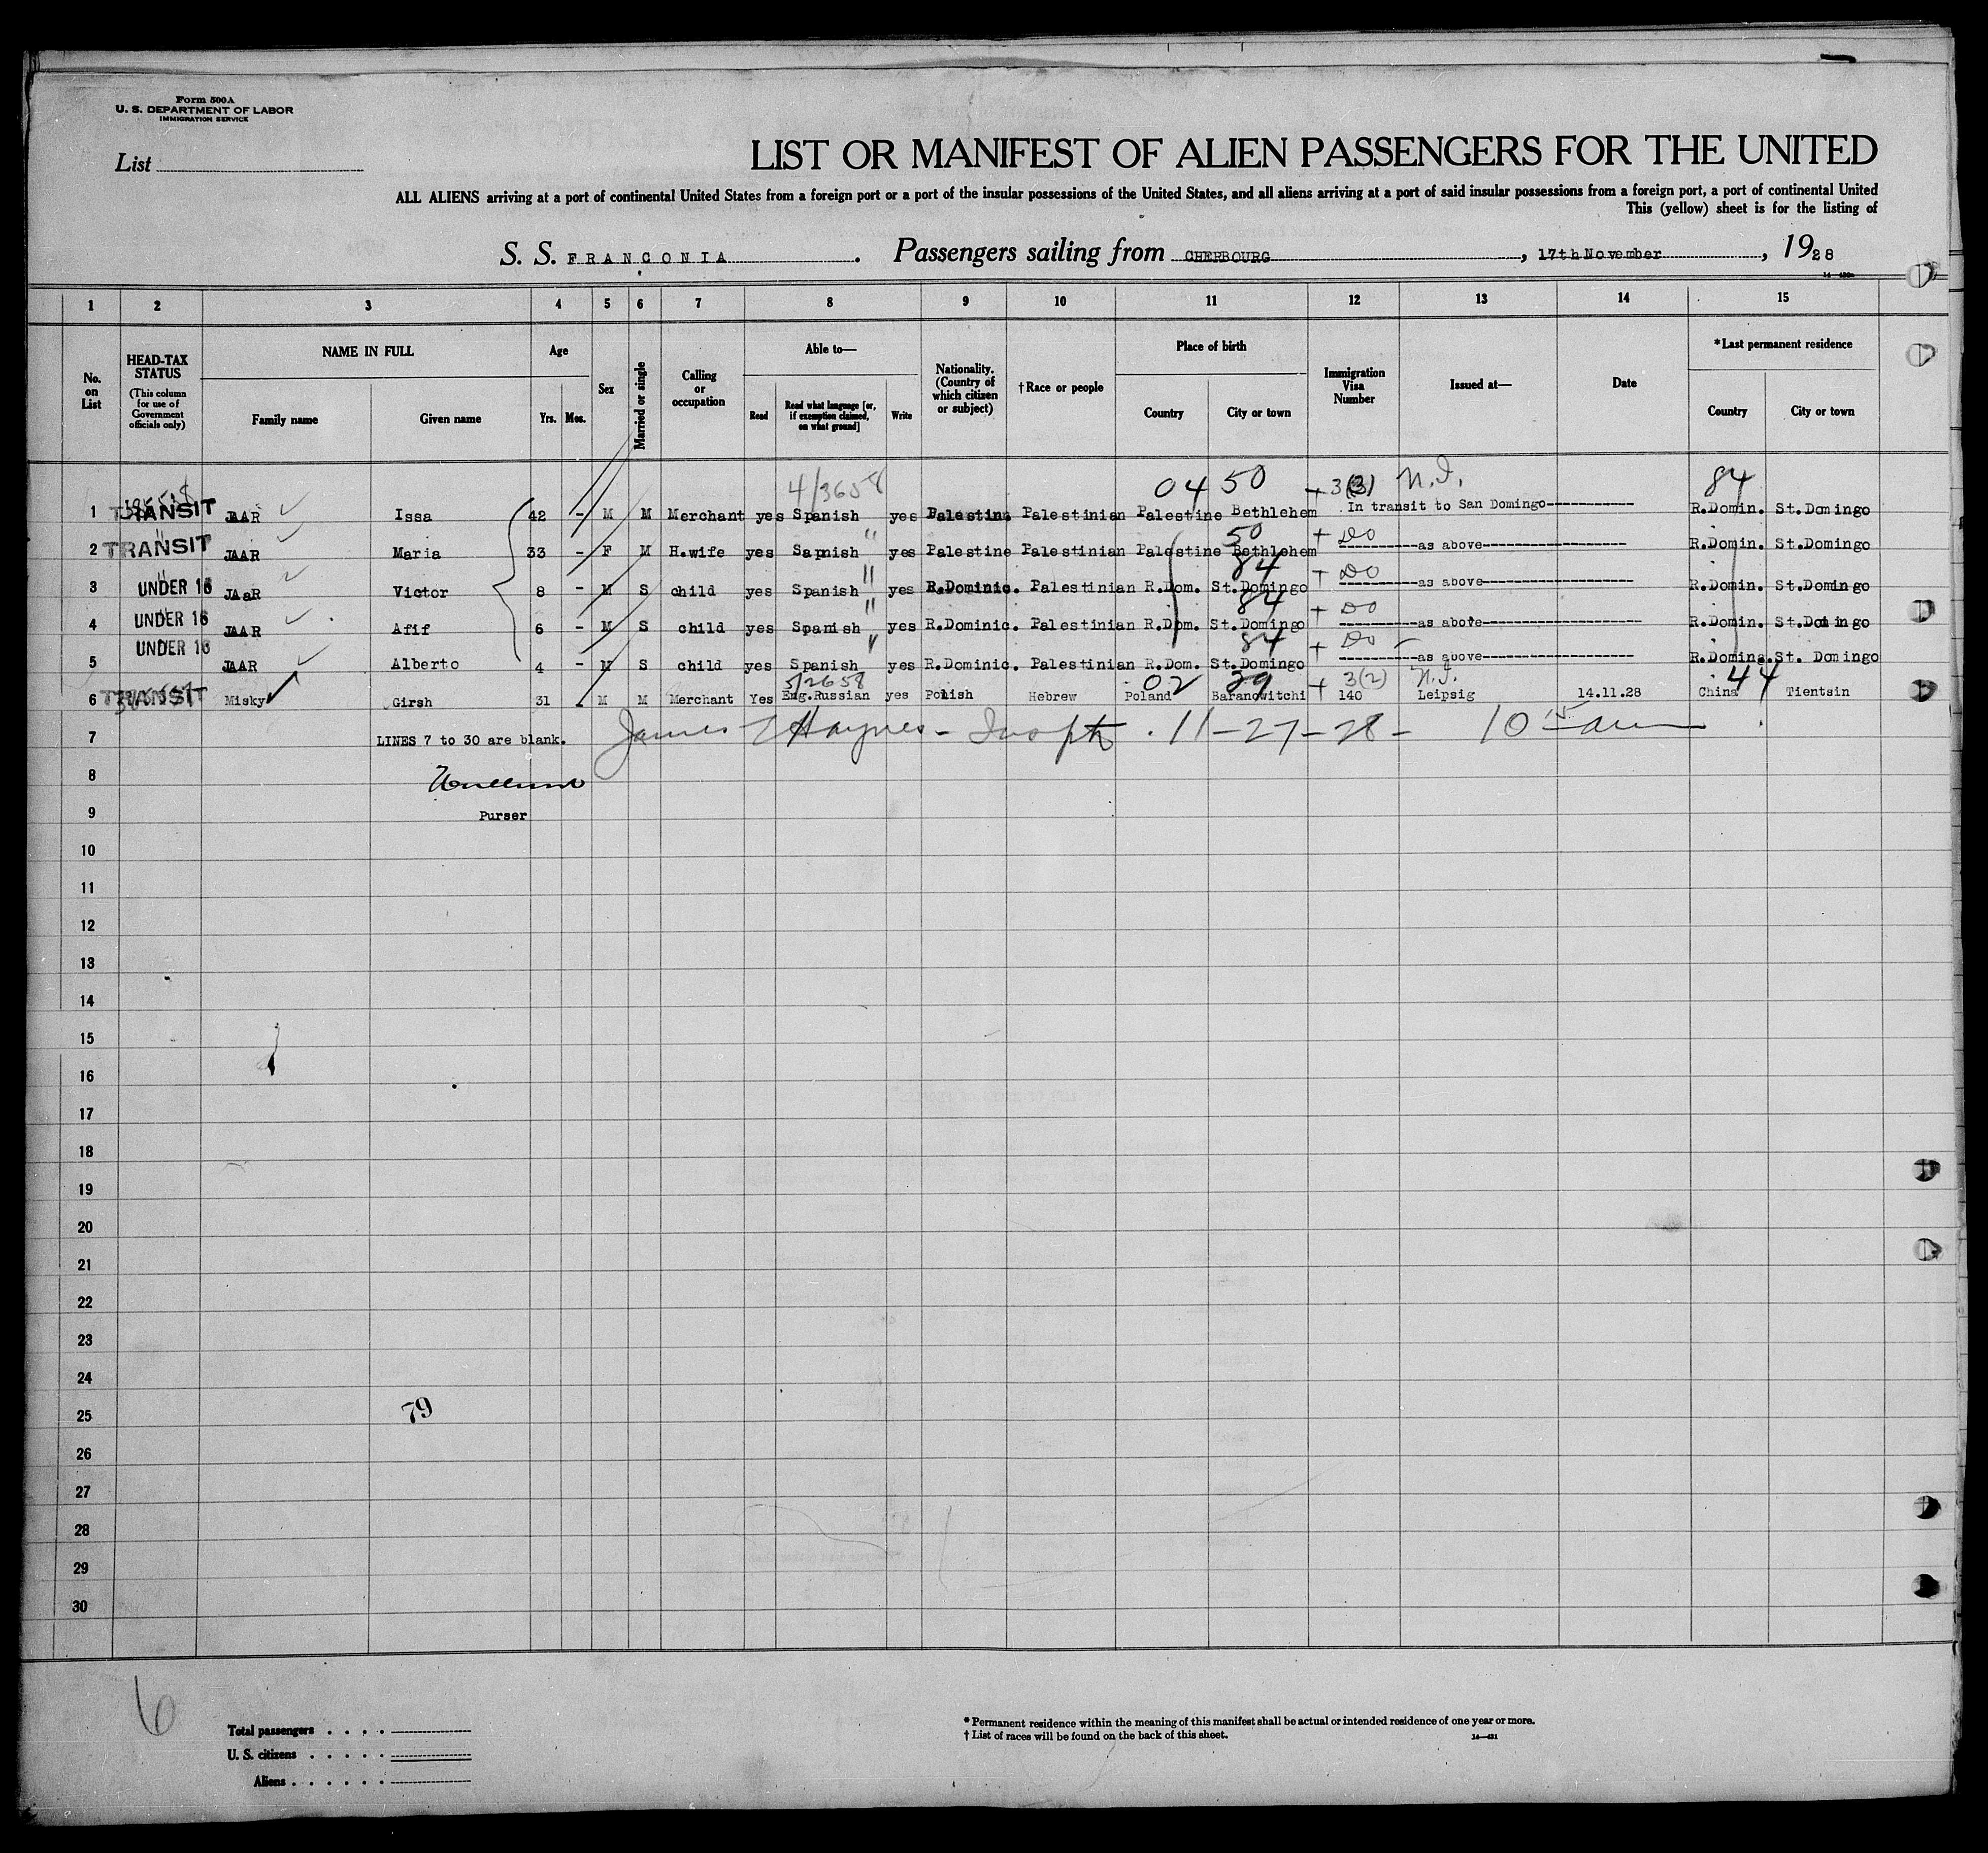 Form 500A
U. S. DEPARTMENT OF LABOR
IMMIGRATION SERVICE
List
LIST OR MANIFEST OF ALIEN PASSENGERS FOR THE UNITED
ALL ALIENS arriving at a port of continental United States from a foreign port or a port of the insular possessions of the United States, and all aliens arriving at a port of said insular possessions from a foreign port, a port of continental United
This (yellow) sheet is for the listing of
S. S. FRANCONIA . Passengers sailing from CHERBOURG , 17th November , 1928
1 2 3 4 5 6 7 8 9 10 11 12 13 14 15
No. on List
HEAD-TAX STATUS
(This column for use of Government officials only)
NAME IN FULL
Family name Given name
Age
Yrs. Mos.
Sex
Married or single
Calling or occupation
Able to—
Read
Read what language [or, if exemption claimed, on what ground]
Write
Nationality. (Country of which citizen or subject)
†Race or people
Place of birth
Country City or town
Immigration Visa Number
Issued at—
Date
*Last permanent residence
Country City or town
4/3658 04 50 + 3(3) N.I. 84
1 TRANSIT JAAR Issa 42 - M M Merchant yes Spanish yes Palestine Palestinian Palestine Bethlehem In transit to San Domingo R.Domin. St.Domingo
" 50 + DO
2 TRANSIT JAAR Maria 33 - F M H.wife yes Sapnish yes Palestine Palestinian Palestine Bethlehem as above R.Domin. St.Domingo
" 84 + DO
3 UNDER 16 JAaR Victor 8 - M S child yes Spanish yes R.Dominic. Palestinian R.Dom. St.Domingo as above R.Domin. St.Domingo
" 84 + DO
4 UNDER 16 JAAR Afif 6 - M S child yes Spanish yes R.Dominic. Palestinian R.Dom. St.Domingo as above R.Domin. St.Domingo
" 84 + DO
5 UNDER 16 JAAR Alberto 4 - M S child yes Spanish yes R.Dominic. Palestinian R.Dom. St.Domingo as above R.Domina. St. Domingo
5/2658 02 39 + 3(2) N.I. 44
6 TRANSIT Misky Girsh 31 M M Merchant Yes Eng.Russian yes Polish Hebrew Poland Baranowitchi 140 Leipsig 14.11.28 China Tientsin
7 LINES 7 to 30 are blank. James Haynes - Insptr. 11-27-28- 10 15 am
8
9 Purser
10
11
12
13
14
15
16
17
18
19
20
21
22
23
24
25 79
26
27
28
29
30
6
Total passengers . . . .
U. S. citizens . . . . .
Aliens . . . . . .
* Permanent residence within the meaning of this manifest shall be actual or intended residence of one year or more.
† List of races will be found on the back of this sheet.
14—431